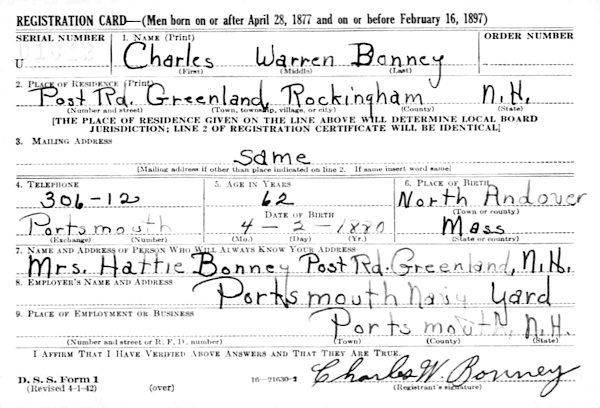 REGISTRATION CARD—(Men born on or after April 28, 1877 and on or before February 16, 1897)
SERIAL NUMBER 1. NAME (Print) ORDER NUMBER
U Charles Warren Bonney
(First) (Middle) (Last)
2. PLACE OF RESIDENCE (Print)
Post Rd. Greenland, Rockingham N.H.
(Number and street) (Town, township, village, or city) (County) (State)
[THE PLACE OF RESIDENCE GIVEN ON THE LINE ABOVE WILL DETERMINE LOCAL BOARD
JURISDICTION; LINE 2 OF REGISTRATION CERTIFICATE WILL BE IDENTICAL]
3. MAILING ADDRESS
Same
[Mailing address if other than place indicated on line 2. If same insert word same]
4. TELEPHONE 5. AGE IN YEARS 6. PLACE OF BIRTH
306-12 62 North Andover
DATE OF BIRTH (Town or county)
Portsmouth 4-2-1880 Mass
(Exchange) (Number) (Mo.) (Day) (Yr.) (State or country)
7. NAME AND ADDRESS OF PERSON WHO WILL ALWAYS KNOW YOUR ADDRESS
Mrs. Hattie Bonney Post Rd. Greenland, N.H.
8. EMPLOYER'S NAME AND ADDRESS
Portsmouth Navy Yard
9. PLACE OF EMPLOYMENT OR BUSINESS
Portsmouth, N.H.
(Number and street or R. F. D. number) (Town) (County) (State)
I AFFIRM THAT I HAVE VERIFIED ABOVE ANSWERS AND THAT THEY ARE TRUE.
D. S. S. Form 1 Charles W. Bonney
(Revised 4-1-42) (over) 16—21630-2 (Registrant's signature)